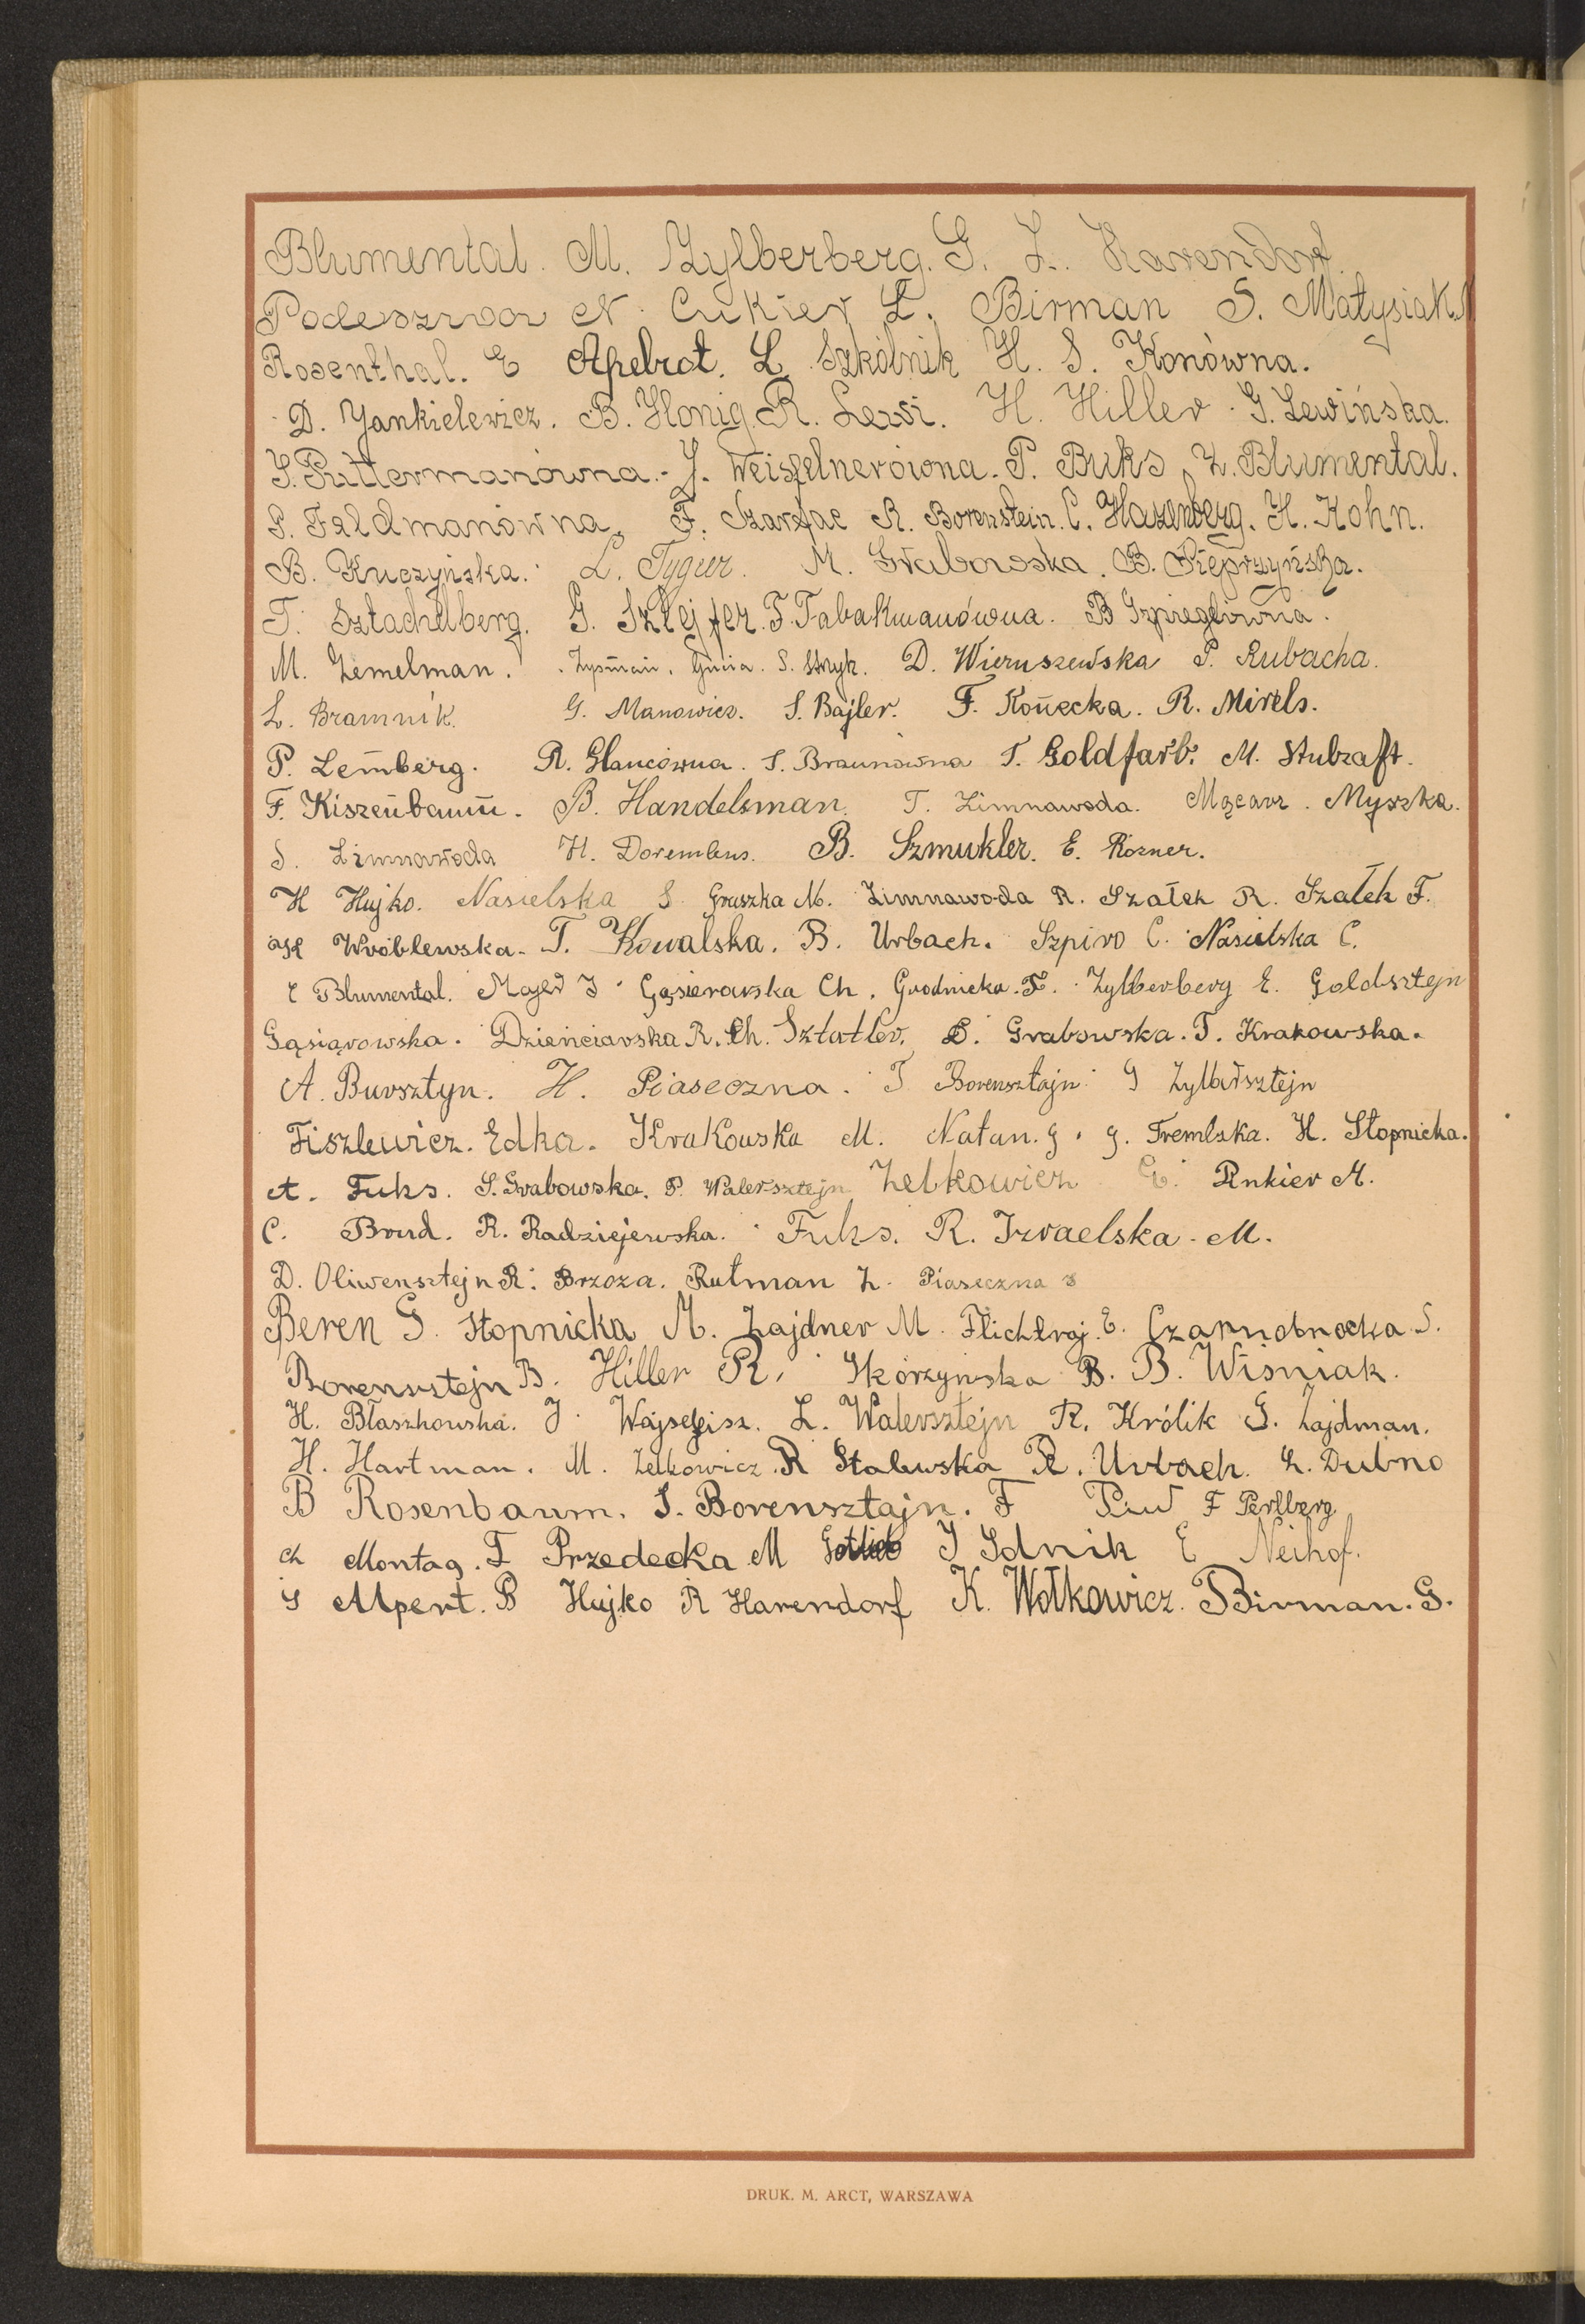 Blumental. M. Zylberberg. G. Z. Harendorf.
Podeszwa N. Cukier Ł. Birman S. Matysiak
Rosenthal. E Apelrot. L Szkólnik H. S. Konówna.
D. Yankielewicz. B. Honig R. Lewi. H. Hiller. G. Lewińska.
S. Puttermanówna. J. Weisfelnerówna. P. Buks Z. Blumental.
P. Feldmanówna, F. Szarfac R. Borenstein. C. Hazenberg. H. Kohn.
B. Kuczyńska. L. Tygier. M. Grabowska. B. Pieprzyńska.
T. Sztachelberg. G. Szlejfer. F. Tabakmanówna. B Szpieglówna.
M. Zemelman. Zysman. Gucia. S. Stryk. D. Wieruszewska P. Rubacha.
L. Bramnik. G. Manowicz. S. Bajler. F. Konecka. R. Mirels.
P. Lemberg. R. Glancówna. S. Braunówna T. Goldfarb. M. Stubzaft.
F. Kiszenbaum. B. Handelsman. T. Zimnawoda. Myszka.
S. Zimnawoda H. Dorembus. B. Szmukler. E. Rozner.
H Hujko. Nasielska S Gruszka M. Zimnawoda R. Szałek R. Szałek F.
H Wróblewska. T. Kowalska. B. Urbach. Szpiro C. Nasielska C.
E Blumental. Majer J Gąsierowska Ch. Grodnicka. F. Zylberberg E. Goldsztejn
Gąsiąrowska. Dzienciarska R. Ch. Sztatler. S. Grabowska. T. Krakowska.
A. Bursztyn. H. Piaseczna. T Borensztajn G Zylbersztejn
Fiszlewicz. Edka. Krakowska M. Natan. G. G. Fremlska. H. Stopnicka.
A. Fuks. S. Grabowska. P. Walersztejn Zelkowicz G. Pinkier M.
C. Brud. R. Radziejewska. Fuks. R. Izraelska. M.
D. Oliwensztejn R. Brzoza. Rutman Z. Piaseczna S
Beren G. Stopnicka M. Zajdner M. Flichtraj. E. Czarnobrocka S.
Borensztejn B. Hiller R. Skórzyńska B. B. Wiśniak.
H. Błaszkowska. J. Wajselfisz. L. Walersztejn R. Królik G. Zajdman.
H. Hartman. M. Zelkowicz. R Stalewska R. Urbach. Z. Dubno
B Rosenbaum. S. Borensztajn. F F Perlberg
Ch Montag. F Przedecka M Gotlib J Idnik E Neihof.
S Alpert. B Hujko R Harendorf K. Wołkowicz. Birman. G.
DRUK. M. ARCT, WARSZAWA